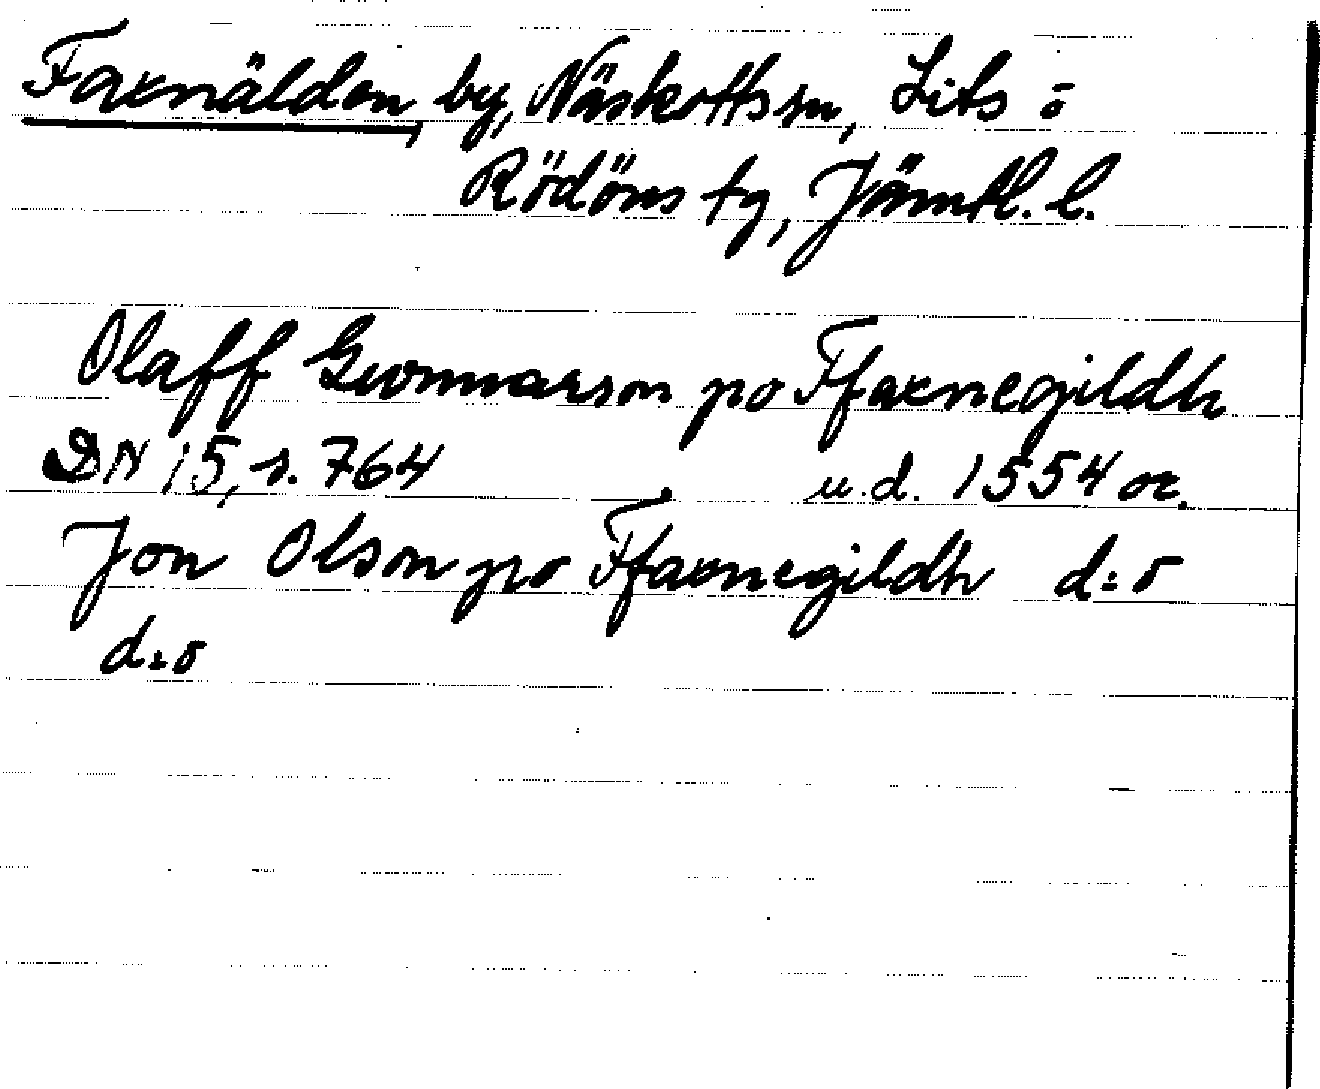 Faxnälden, by, Näskotts sn, Lits o
Rödöns tg, Jämtl. l.
Olaff Gwnnarson po Ffaxnegildh
DN 15, s. 764 u.d. 1554 or.
Jon Olson po Ffaxnegildh d:o
d:o